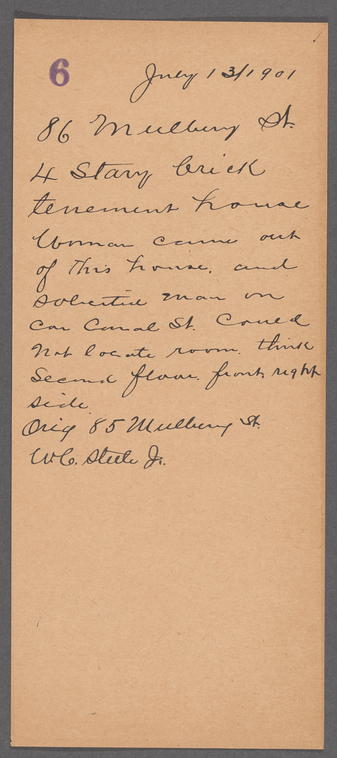 6
July 13/1901
86 Mulberry St.
4 Story brick
tenement house
Woman came out
of this house, and
solicited man on
cor Canal St. Couled
not locate room. think
Second floor, front, right
side.
Orig 85 Mulberry St.
W.C. Steele Jr.